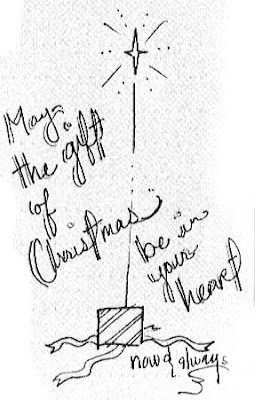 May
the gift
of
Christmas
be in
your
heart
now & always